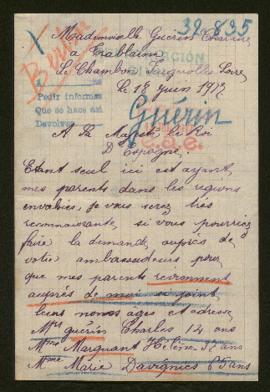 39.835
Mademoiselle Guérin
a Trablaine
Le Chambon Feugerolles Loire
le 18 juin 1917
Pedir informes
Que se hace así
Devolver
Guérin
A Sa Majesté le Roi
D'Espagne,
Etant seul ici et ayant,
mes parents dans les régions
envahies, je vous serez très
reconnaissante, si vous pourriez
faire la demande, auprès de
votre ambassadeurs pour
que mes parents reviennent
auprès de moi ci joint
leurs noms ages et adresse
Mr Guérin Charles 14 ans
Mme Marquant Hélène 51 ans
Mme Marie Davignies 85 ans